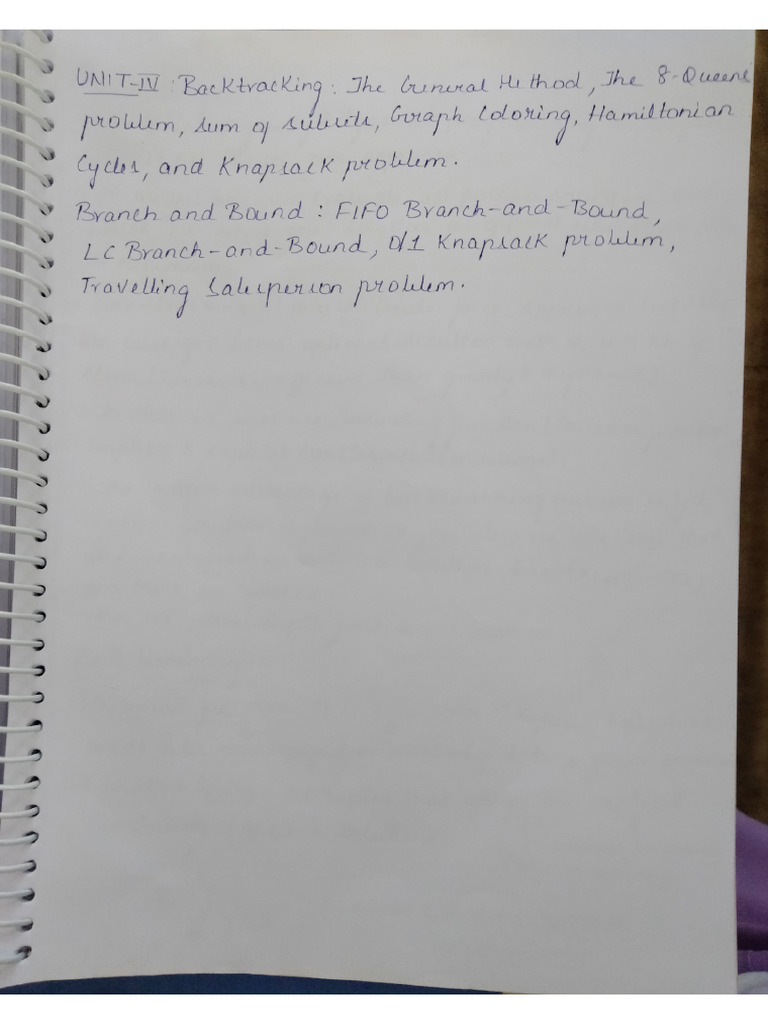 UNIT-IV : Backtracking : The General Method, The 8-Queens
problem, sum of subsets, Graph Coloring, Hamiltonian
Cycles, and Knapsack problem.
Branch and Bound : FIFO Branch-and-Bound,
LC Branch-and-Bound, 0/1 Knapsack problem,
Travelling Salesperson problem.